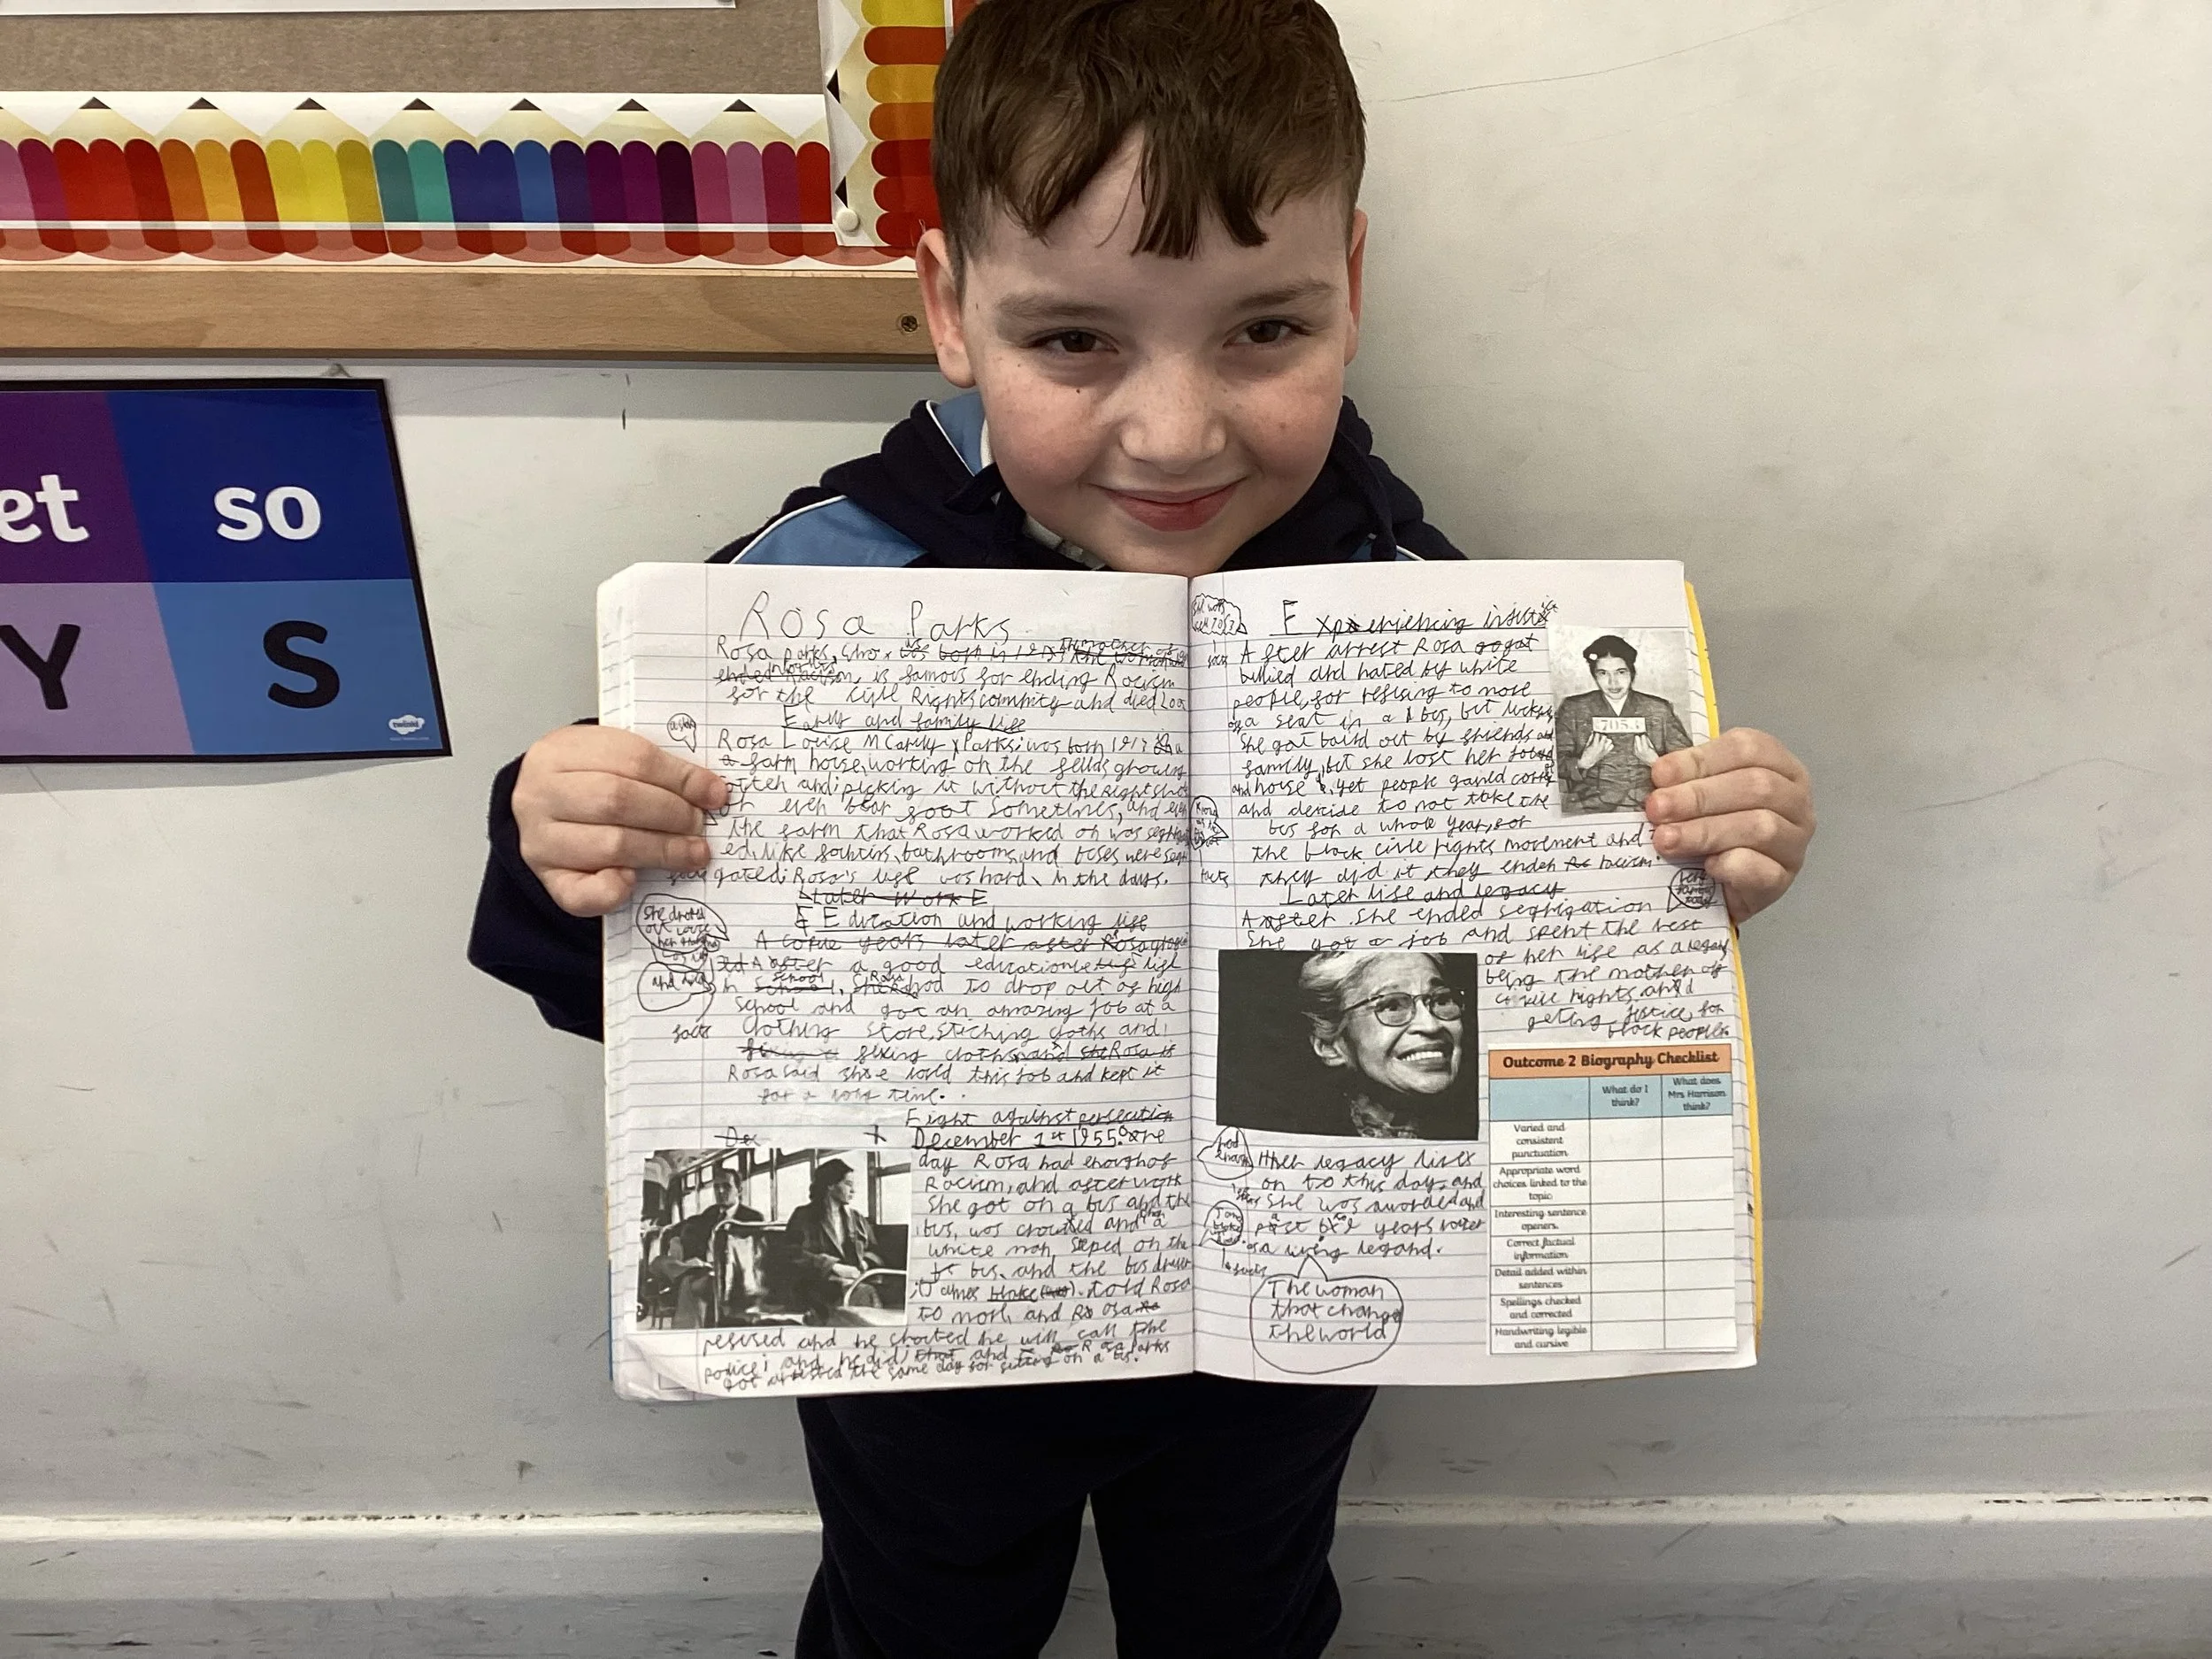 et so
Y S
twinkl
Rosa Parks
Rosa Parks, who
is famous for ending Racism
for the Civil Rights and died
Early and family life
Rosa Louise MCauley Parks: was born 1913 a
a farm house, working on the feilds growing
and picking it without the right
or even sometimes, and even
the farm that Rosa worked on was
ed, like bathrooms, and buses were
gated: Rosa's life was hard, in the days.
Later Work E
Education and working life
A years later after Rosa
After a good education
in school, Rosa had to drop out of high
School and got an amazing job at a
Clothing store, stiching cloths and
fixing cloths, and she Rosa
Rosa said she loved this job and kept it
for a long time.
Fight against persecution
Dec
December 1st 1955: one
day Rosa had enough of
Racism, and after work
She got on a bus and the
bus, was crowded and when a
white man, steped on the
bus. and the bus driver
James Blake told Rosa
to move, and Rosa
refused and he shouted he will call the
police; and he did, and Rosa Parks
got arrested the same day for sitting on a bus.
facts
Experiencing
After arrest Rosa got
bullied and hated by white
people, for refusing to move
of a seat in a bus, but luckily
She got baild out by friends and
family, but she lost her job
and house, yet people gained
and dercide to not take the
bus for a whole year, for
the black civle rights movement and
they did it they ended racism.
Later life and legacy
After she ended
She got a job and spent the rest
of her life as a legacy
being the mother of
civle rights and
geting justice for
black people.
Her legacy lives
on to this day, and
she was
years later
as a living legand.
The woman
that change
the world
facts
7053
Outcome 2 Biography Checklist
What do I think?
What does Mrs Harrison think?
Varied and consistent punctuation
Appropriate word choices linked to the topic
Interesting sentence openers.
Correct factual information
Detail added within sentences
Spellings checked and corrected
Handwriting legible and cursive